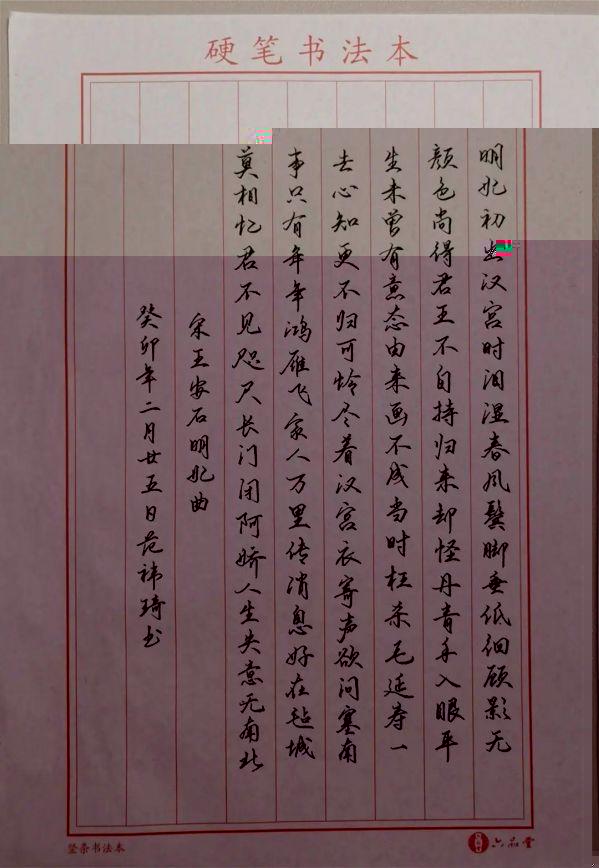 硬笔书法本
明妃初出汉宫时泪湿春风鬓脚垂低佪顾影无
颜色尚得君王不自持归来却怪丹青手入眼平
生未曾有意态由来画不成当时枉杀毛延寿一
去心知更不归可怜尽着汉宫衣寄声欲问塞南
事只有年年鸿雁飞家人万里传消息好在毡城
莫相忆君不见咫尺长门闭阿娇人生失意无南北
宋王安石明妃曲
癸卯年二月廿五日范祎琦书
竖条书法本
六品堂